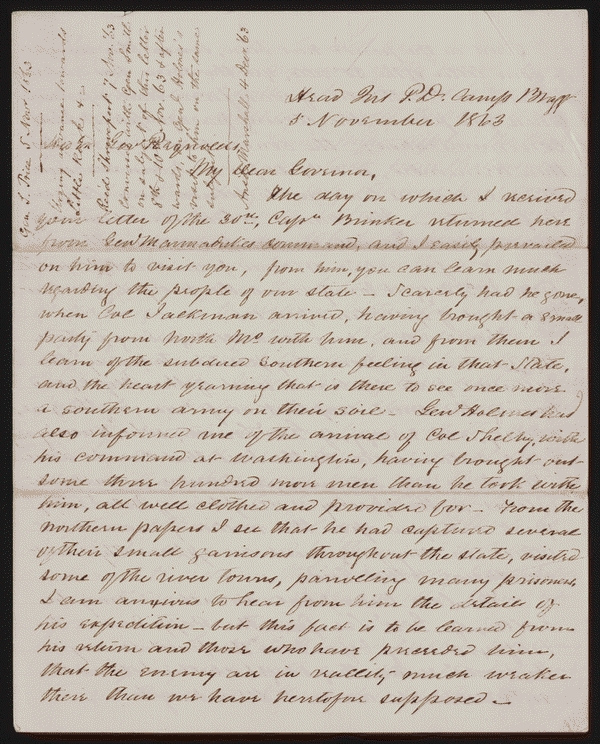 Head Qrs P.D. Camp Bragg
5 November 1863
Gov Reynolds,
My dear Governor,
The day on which I received
your letter of the 30th, Capn Brinker returned here
from Genl Marmaduke's command, and I easily prevailed
on him to visit you, from him, you can learn much
regarding the people of our state - Scarcely had he gone,
when Col Jackman arrived, having brought a small
party from North Mo with him, and from them I
learn of the subdued Southern feeling in that State,
and the heart yearning that is there to see once more
a southern army on their soil - Genl Holmes had
also informed me of the arrival of Col Shelby, with
his command at Washington, having brought out
some three hundred more men than he took with
him, all well clothed and provided for - From the
northern papers I see that he had captured several
of their small garrisons throughout the state, visited
some of the river towns, paroleing many prisoners
I am anxious to hear from him the details of
his expedition - but this fact is to be learned from
his return and those who have preceeded him,
that the enemy are in reallity much weaker
there than we have heretofore supposed -
Gen. S. Price 5 Nov 1863
Urging advance towards
Little Rock, &c
Recd Shreveport 7 Nov. '63
Genl Smith
on subject of this letter
8th & 10th Nov. 63 & after
wards Genl Holmes's
on the same
subject
Marshall 4 Decr '63